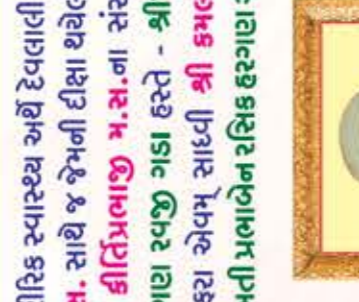 રીરિક સ્વાસ્થ્ય અર્થે દેવલાલી
સ. સાથે જ જેમની દીક્ષા થયેલ
કીર્તિપ્રભાજી મ.સ.ના
ગણ રવજી ગડા હસ્તે - શ્રી
કરા એવમ્ સાધ્વી શ્રી કમલ
મતી પ્રભાબેન રસિક હરગણ